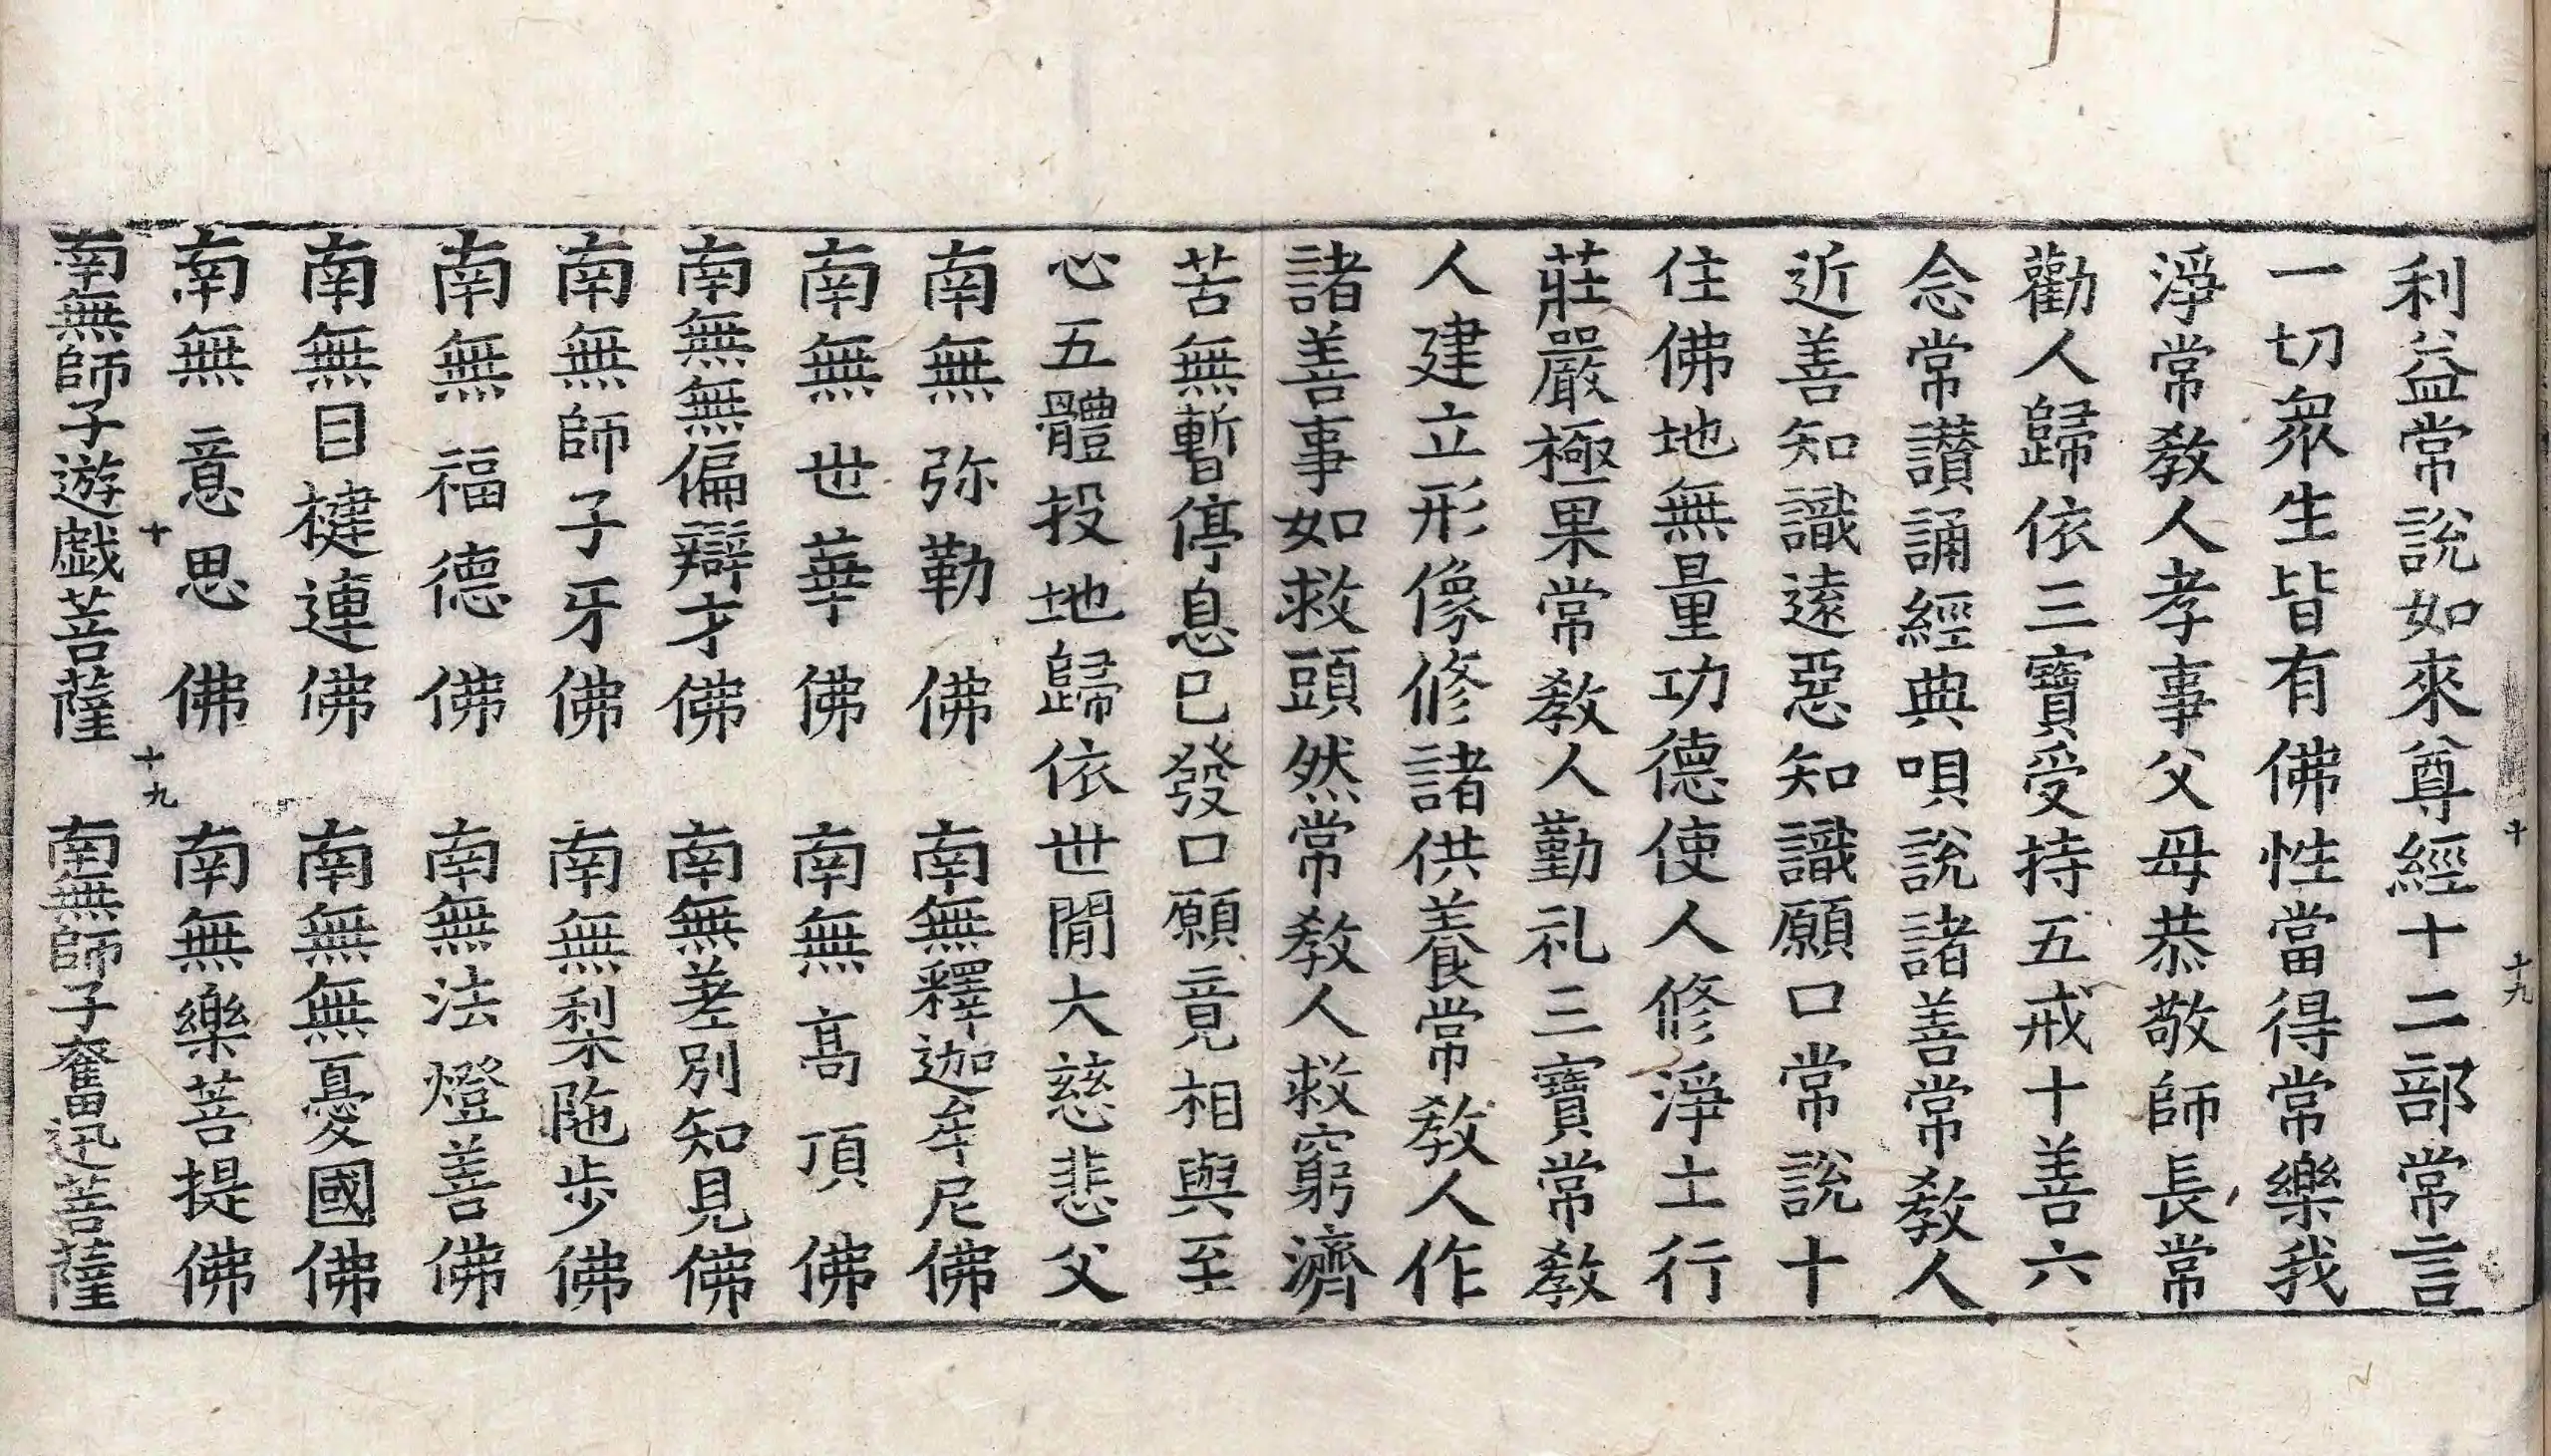 十 十九
利益常說如來尊經十二部常言
一切衆生皆有佛性當得常樂我
淨常教人孝事父母恭敬師長常
勸人歸依三寶受持五戒十善六
念常讃誦經典唄說諸善常教人
近善知識遠惡知識願口常說十
住佛地無量功德使人修淨土行
莊嚴極果常教人勤礼三寶常教
人建立形像修諸供養常教人作
諸善事如救頭然常教人救窮濟
苦無暫停息已發口願竟相與至
心五體投地歸依世閒大慈悲父
南無弥勒佛 南無釋迦牟尼佛
南無世華佛 南無高頂佛
南無無偏辯才佛 南無差別知見佛
南無師子牙佛 南無梨陁步佛
南無福德佛 南無法燈善佛
南無目揵連佛 南無無憂國佛
南無意思佛 南無樂菩提佛
十 十九
南無師子遊戯菩薩 南無師子奮迅菩薩